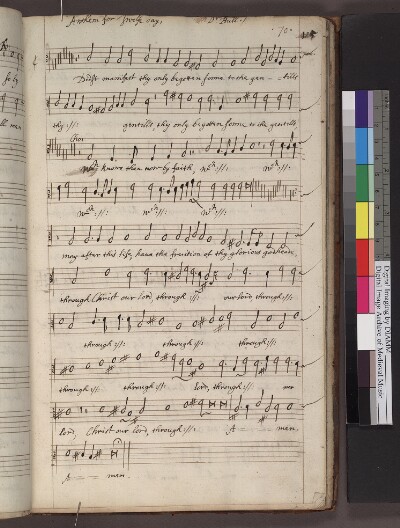 Anthem for Twelfe day, Dr Bull:/
70.
Didst manifest thy only begotten sonne to the gen - tills
thy ://: gentills thy only begotten sonne to the gentills
Cho:
Wch knowe thee now by faith wch ://: wch ://:
wch ://: wch ://: wch ://:
may after this life, haue the fruition of thy glorious godhead,
through Christ our lord through ://: our lord through ://:
through ://: through ://: through ://:
through ://: through ://: lord, through ://: our
lord, Christ our lord, through ://: A men,
A men.
Digital Imaging by DIAMM
Digital Image Archive of Medieval Music